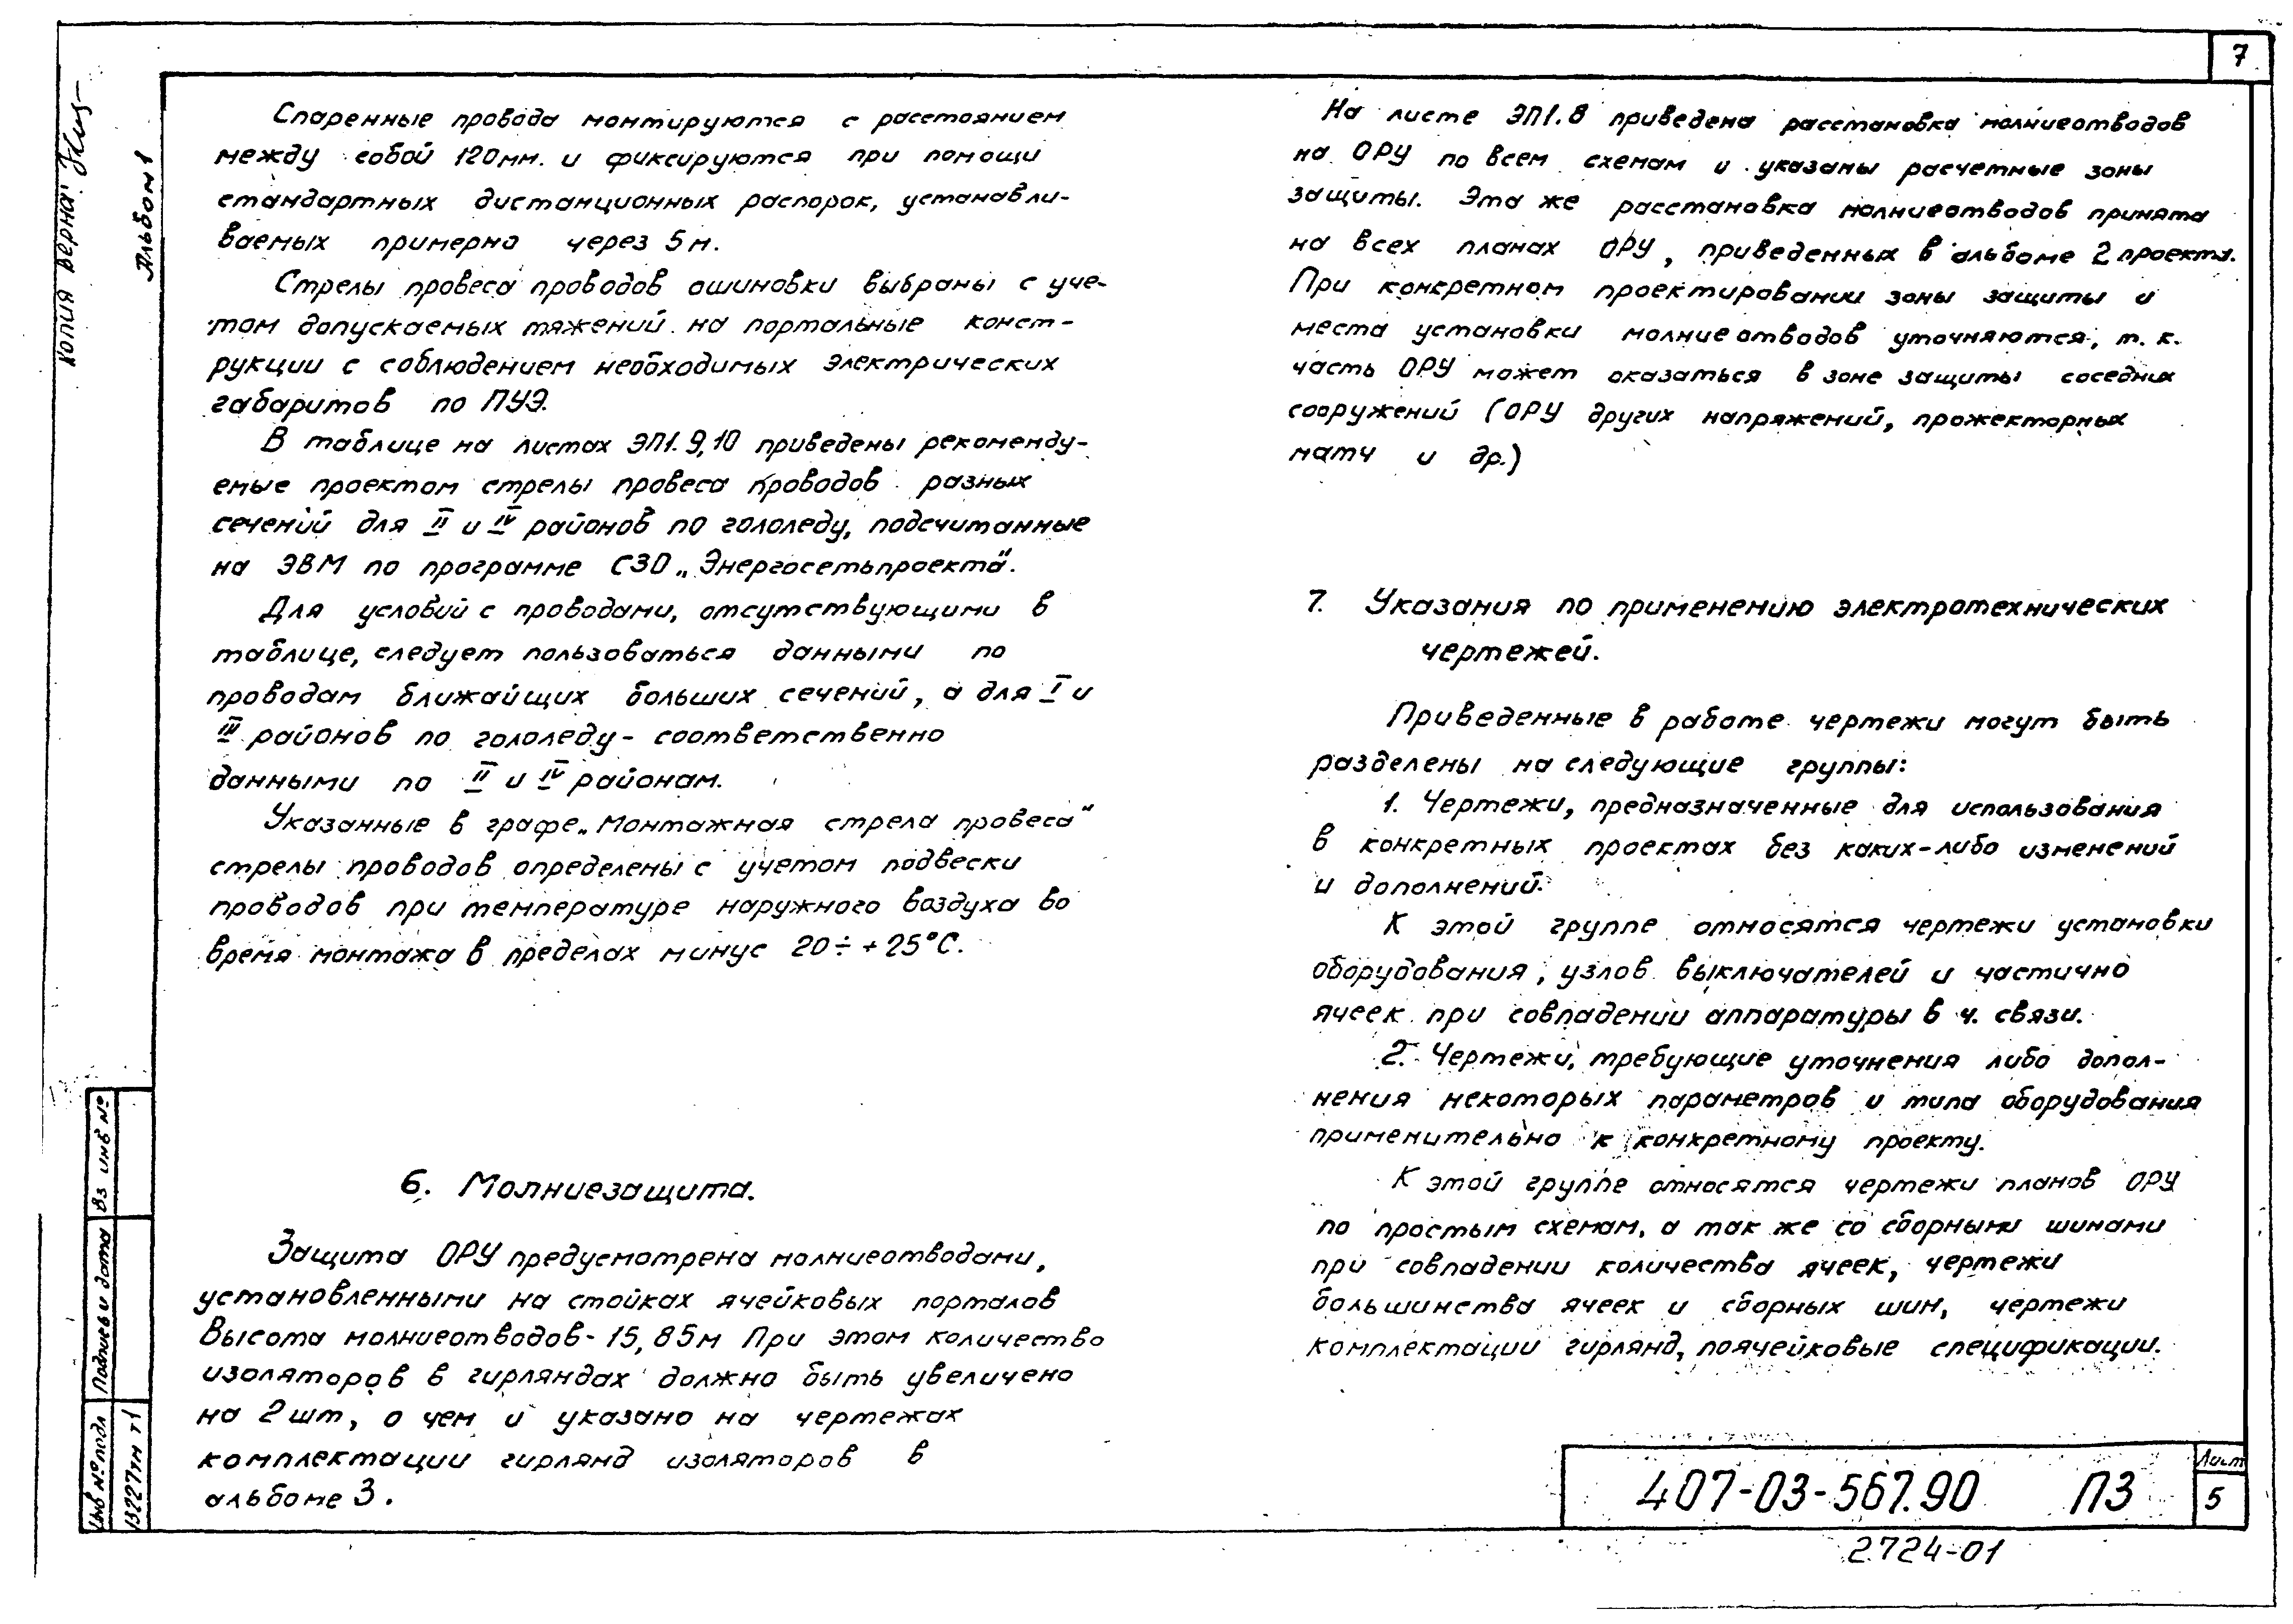 7
Копия верна:
Альбом 1
Спаренные провода монтируются с расстоянием
между собой 120мм. и фиксируются при помощи
стандартных дистанционных распорок, устанавли-
ваемых примерно через 5м.
Стрелы провеса проводов ошиновки выбраны с уче-
том допускаемых тяжений на портальные конст-
рукции с соблюдением необходимых электрических
габаритов по ПУЭ.
В таблице на листах ЭП1.9,10 приведены рекоменду-
емые проектом стрелы провеса проводов разных
сечений для II и IV районов по гололеду, подсчитанные
на ЭВМ по программе СЗО „Энергосетьпроекта".
Для условий с проводами, отсутствующими в
таблице, следует пользоваться данными по
проводам ближайщих больших сечений, а для I и
III районов по гололеду - соответственно
данными по II и IV районам.
Указанные в графе „Монтажная стрела провеса"
стрелы проводов определены с учетом подвески
проводов при температуре наружного воздуха во
время монтажа в пределах минус 20÷+25°С.
6. Молниезащита.
Защита ОРУ предусмотрена молниеотводами,
установленными на стойках ячейковых порталов
Высота молниеотводов - 15,85м При этом количество
изоляторов в гирляндах должно быть увеличено
на 2шт, о чем и указано на чертежах
комплектации гирлянд изоляторов в
альбоме 3.
На листе ЭП1.8 приведена расстановка молниеотводов
на ОРУ по всем схемам и указаны расчетные зоны
защиты. Эта же расстановка молниеотводов принята
на всех планах ОРУ, приведенных в альбоме 2 проекта.
При конкретном проектировании зоны защиты и
места установки молниеотводов уточняются, т.к.
часть ОРУ может оказаться в зоне защиты соседних
сооружений (ОРУ других напряжений, прожекторных
матч и др.)
7. Указания по применению электротехнических
чертежей.
Приведенные в работе чертежи могут быть
разделены на следующие группы:
1. Чертежи, предназначенные для использования
в конкретных проектах без каких-либо изменений
и дополнений.
К этой группе относятся чертежи установки
оборудования, узлов выключателей и частично
ячеек при совпадении аппаратуры в ч. связи.
2. Чертежи, требующие уточнения либо допол-
нения некоторых параметров и типа оборудования
применительно к конкретному проекту.
К этой группе относятся чертежи планов ОРУ
по простым схемам, а так же со сборными шинами
при совпадении количества ячеек, чертежи
большинства ячеек и сборных шин, чертежи
комплектации гирлянд, поячейковые спецификации.
Вз инв №
Подпись и дата
Инв № подл
13227тм т1
407-03-567.90 ПЗ
Лист
5
2724-01